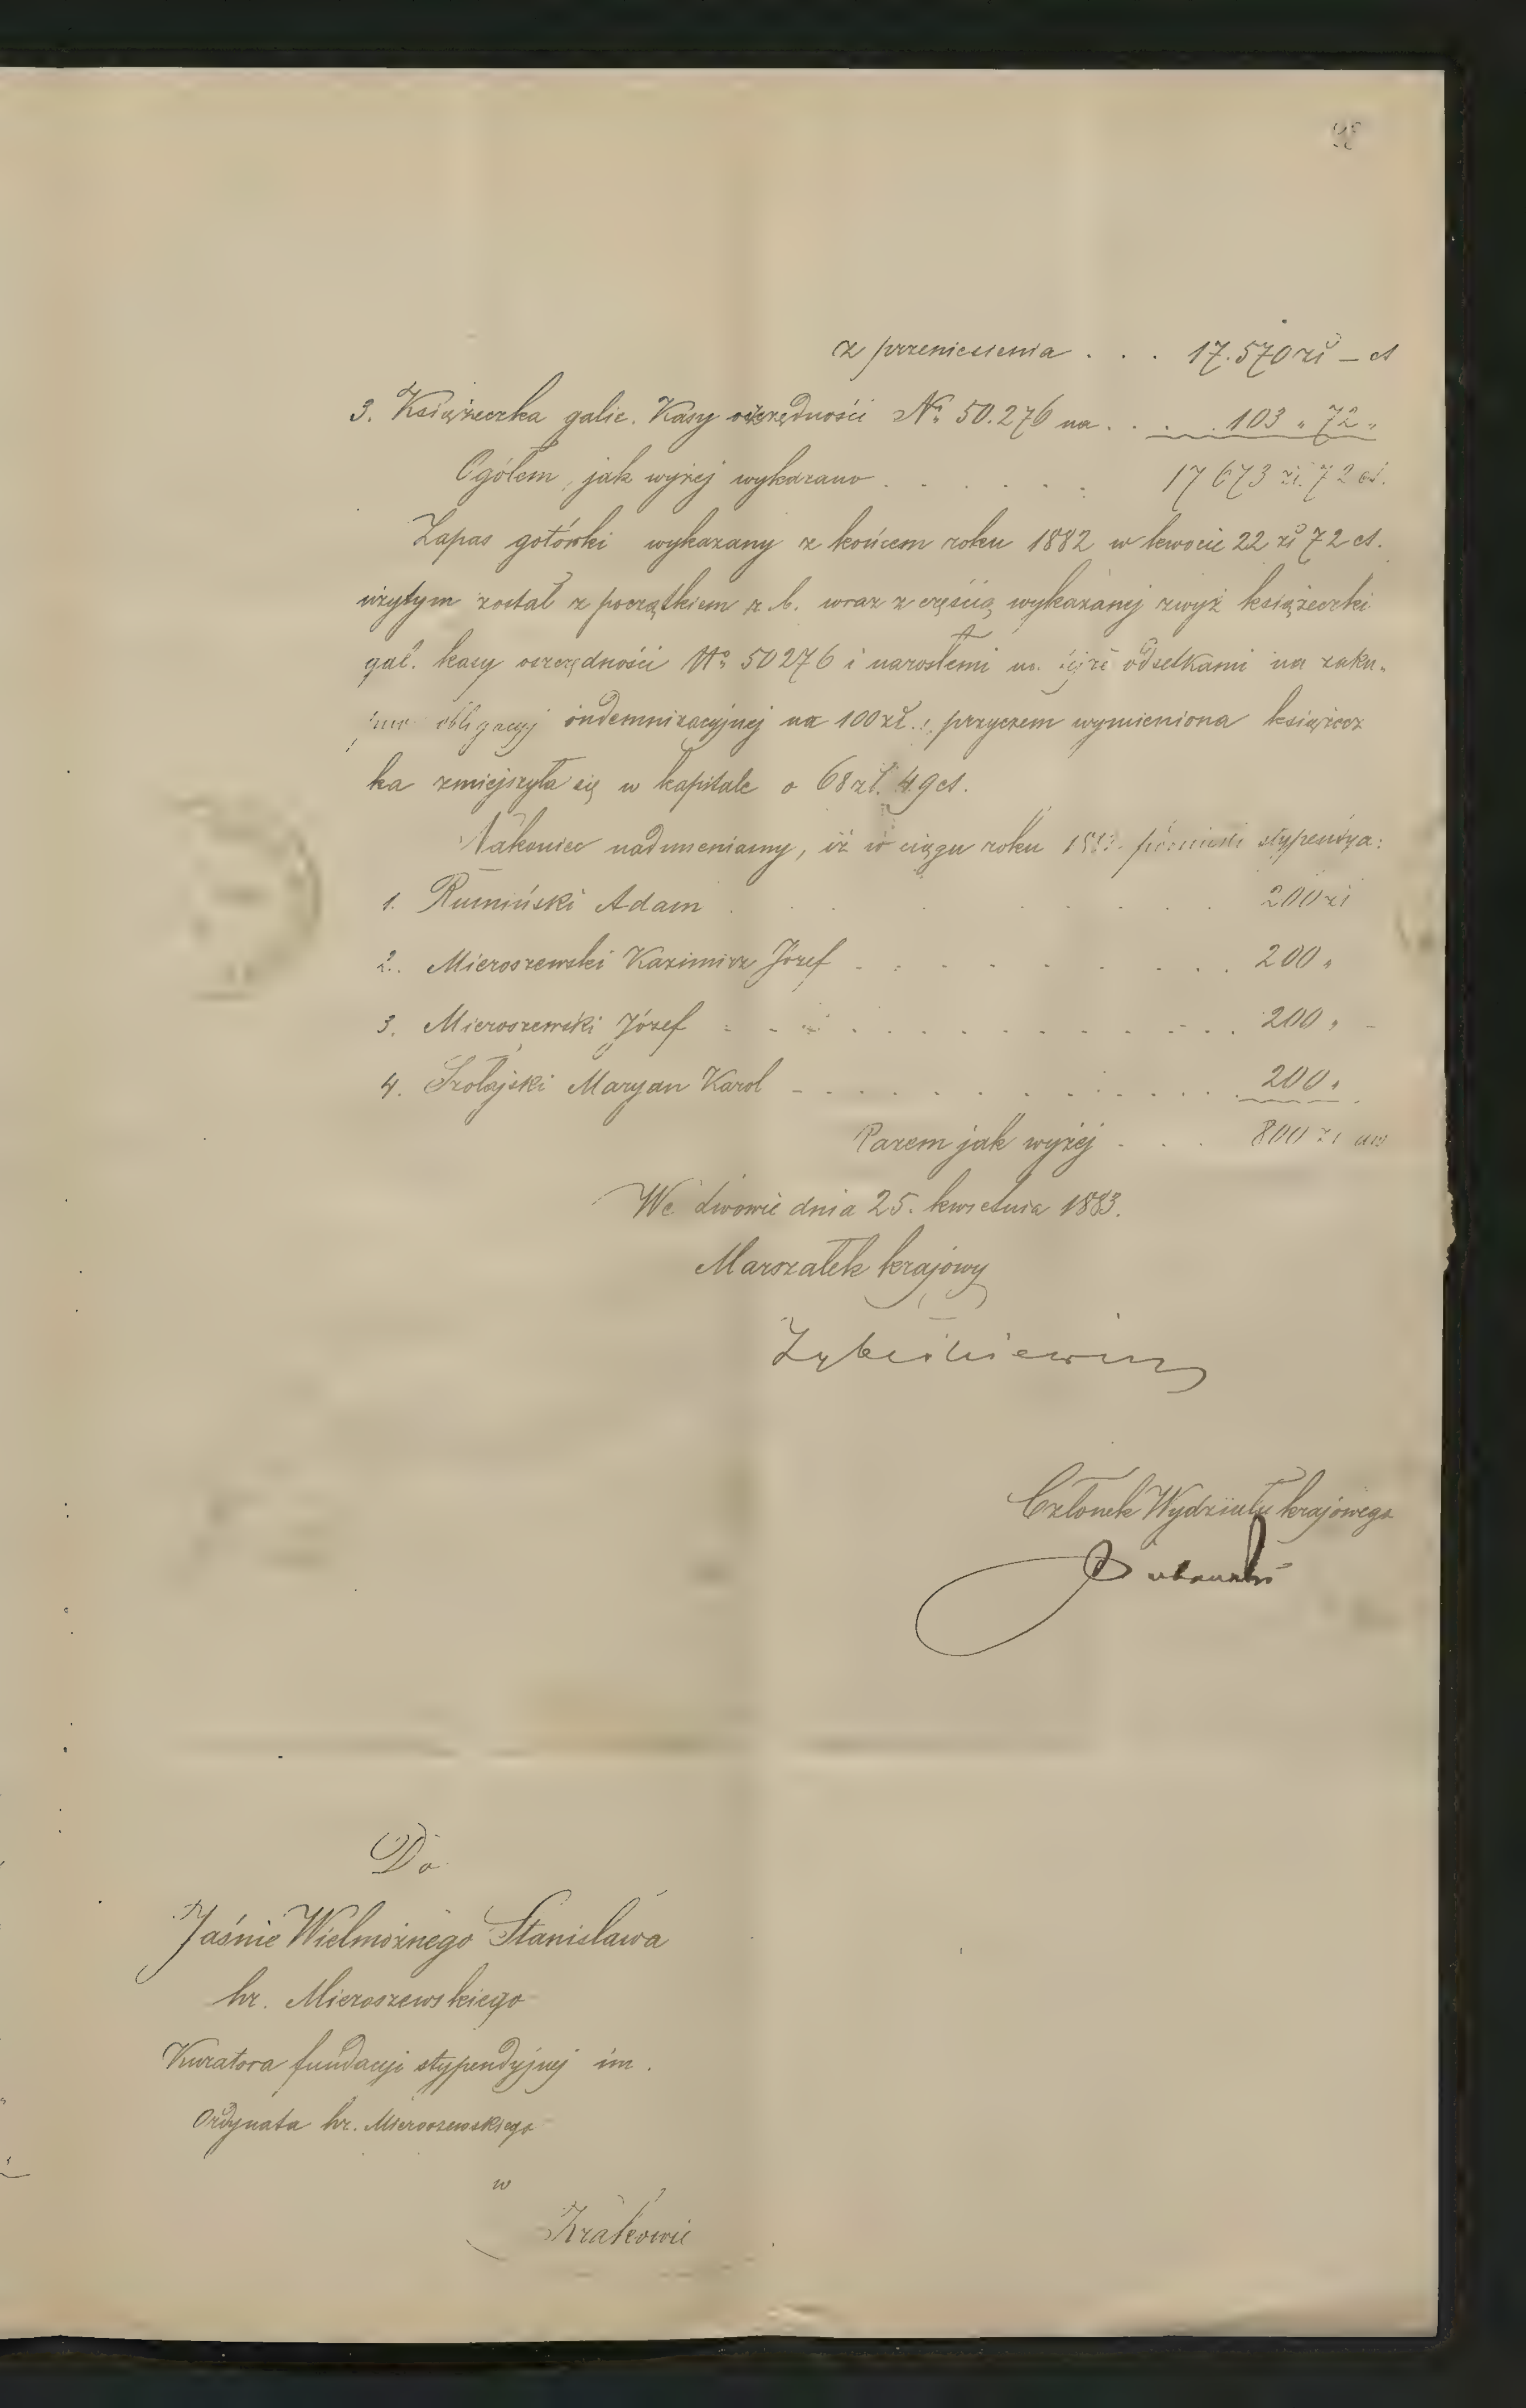 98
z przeniesienia . . . 17.570 zł – ct
3. Książeczka galic. Kasy oszczędności No 50.276 na . . . . 103 „ 72 „
Ogółem, jak wyżej wykazano . . . . . . 17673 zł. 72 ct.
Zapas gotówki wykazany z końcem roku 1882 w kwocie 22 zł 72 ct.
użytym został z początkiem r. b. wraz z częścią wykazanej zwyż książeczki
gal. kasy oszczędności No 50276 i narosłemi odsetkami na zaku-
pno obligacyj indemnizacyjnej na 100 zł., przyczem wymieniona książecz
ka zmiejszyła się w kapitale o 68 zł. 49 ct.
Nakoniec nadmieniamy, iż w ciągu roku stypendya:
1. Rumiński Adam . . . . . . . . 200 zł
2. Mieroszewski Kazimirz Józef . . . . . . . . 200 „
3. Mieroszewski Józef . . . . . . . . . . . . 200 „ –
4. Szołajski Maryan Karol – . . . . . . . . . 200 „
Razem jak wyżej . . . 800 zł aw
We Lwowie dnia 25. kwietnia 1883.
Marszałek krajowy
Zyblikiewicz
Członek Wydziału krajowego
Do
Jaśnie Wielmożnego Stanisława
hr. Mieroszewskiego
Kuratora fundacyi stypendyjnej im.
Ordynata hr. Mieroszewskiego
w
Krakowie